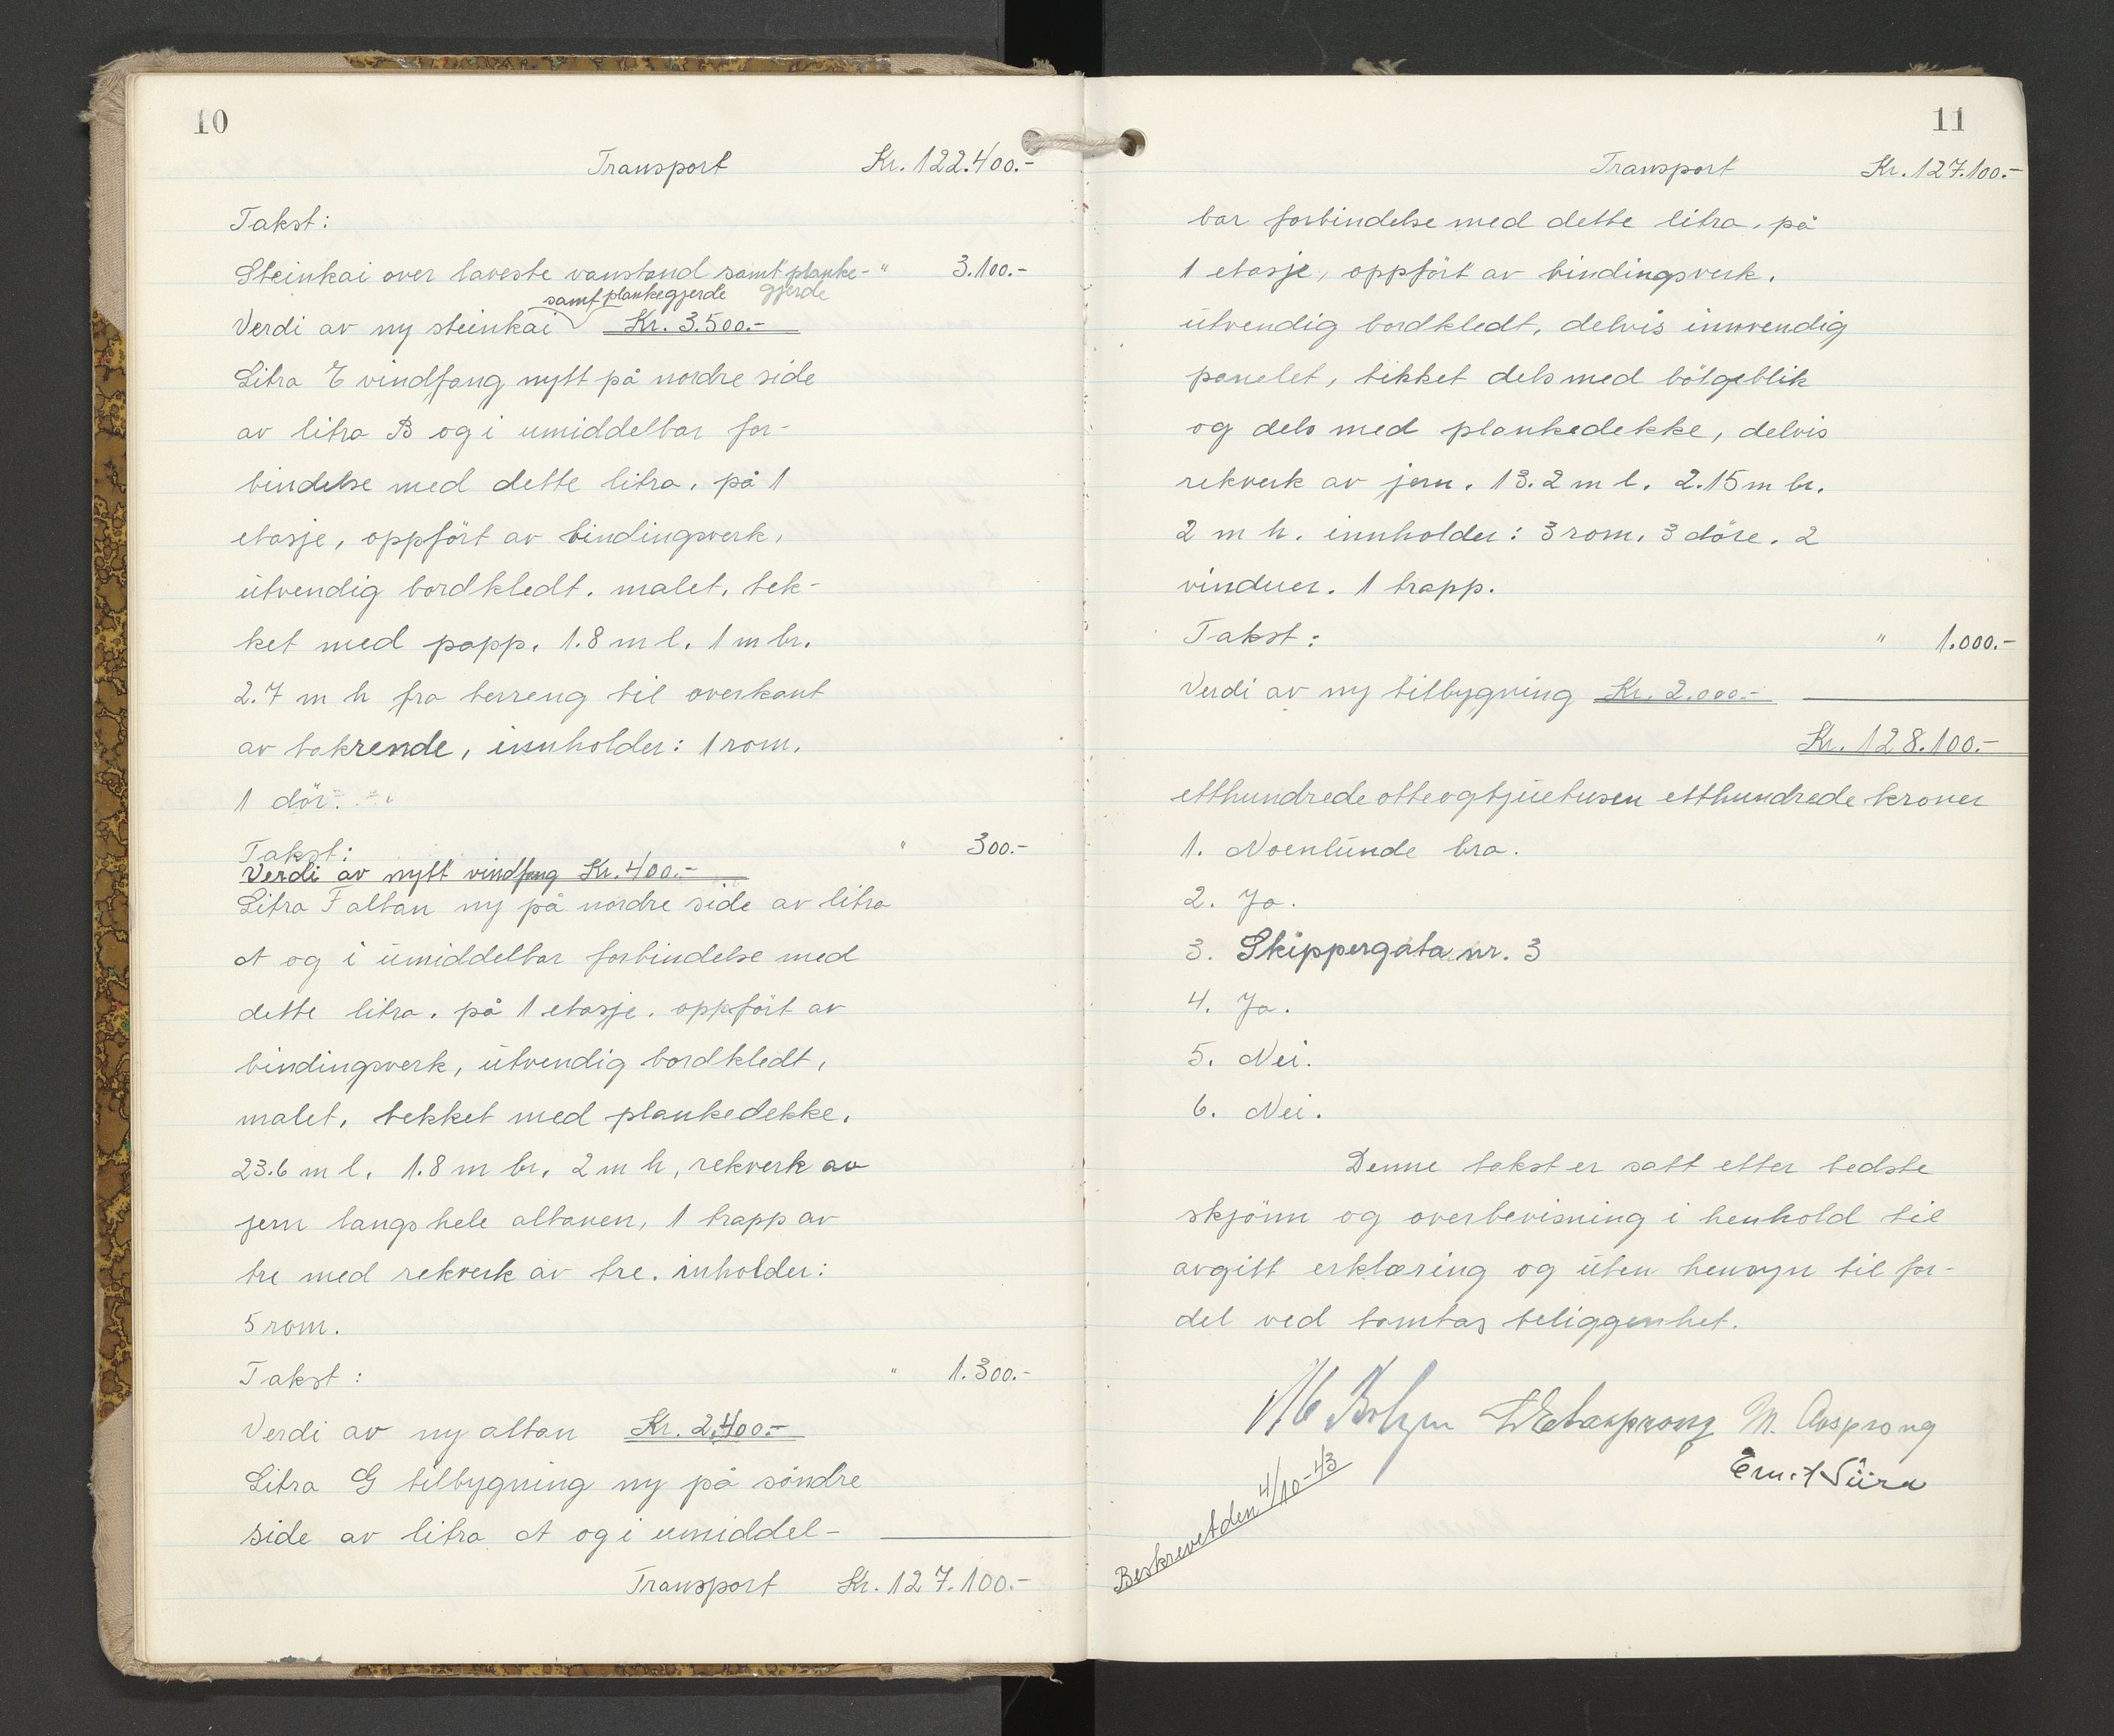 10
Transport Kr. 122.400.-
Takst:
Steinkai over laveste vanstand samt planke- " 3.100.-
gjerde
samt plankegjerde
Verdi av ny steinkai Kr. 3.500.-
Litra E vindfang nytt på nordre side
av litra B og i umiddelbar for-
bindelse med dette litra, på 1
etasje, oppført av bindingsverk,
utvendig bordkledt, malet, tek-
ket med papp. 1.8 m l. 1 m br.
2.7 m h fra terreng til overkant
av takrende, innholder: 1 rom.
1 dör.
Takst: " 300.-
Verdi av nytt vindfang Kr. 400.-
Litra F altan ny på nordre side av litra
A og i umiddelbar forbindelse med
dette litra. på 1 etasje. oppfört av
bindingsverk, utvendig bordkledt,
malet, tekket med plankedekke.
23.6 m l. 1.8 m br. 2 m h, rekverk av
jern langs hele altanen, 1 trapp av
tre med rekverk av tre. inholder:
5 rom.
Takst: " 1.300.-
Verdi av ny altan Kr. 2.400.-
Litra G tilbygning ny på söndre
side av litra A og i umiddel-
Transport Kr. 127.100.-
11
Transport Kr. 127.100.-
bar forbindelse med dette litra, på
1 etasje, oppfört av bindingsverk.
utvendig bordkledt, delvis innvendig
panelet, tekket dels med bölgeblik
og dels med plankedekke, delvis
rekverk av jern. 13.2 m l. 2.15 m br.
2 m h. innholder: 3 rom. 3 döre. 2
vinduer. 1 trapp.
Takst: " 1.000.-
Verdi av ny tilbygning Kr. 2.000.-
Kr. 128.100.-
etthundrede otteogtjuetusen etthundrede kroner
1. Noenlunde bra.
2. Ja.
3. Skippergata nr. 3
4. Ja.
5. Nei.
6. Nei.
Denne takst er satt etter bedste
skjönn og overbevisning i henhold til
avgitt erklæring og uten hensyn til for-
del ved tomtas beliggenhet.
M. Aasprong
Beskrevet den 4/10-43